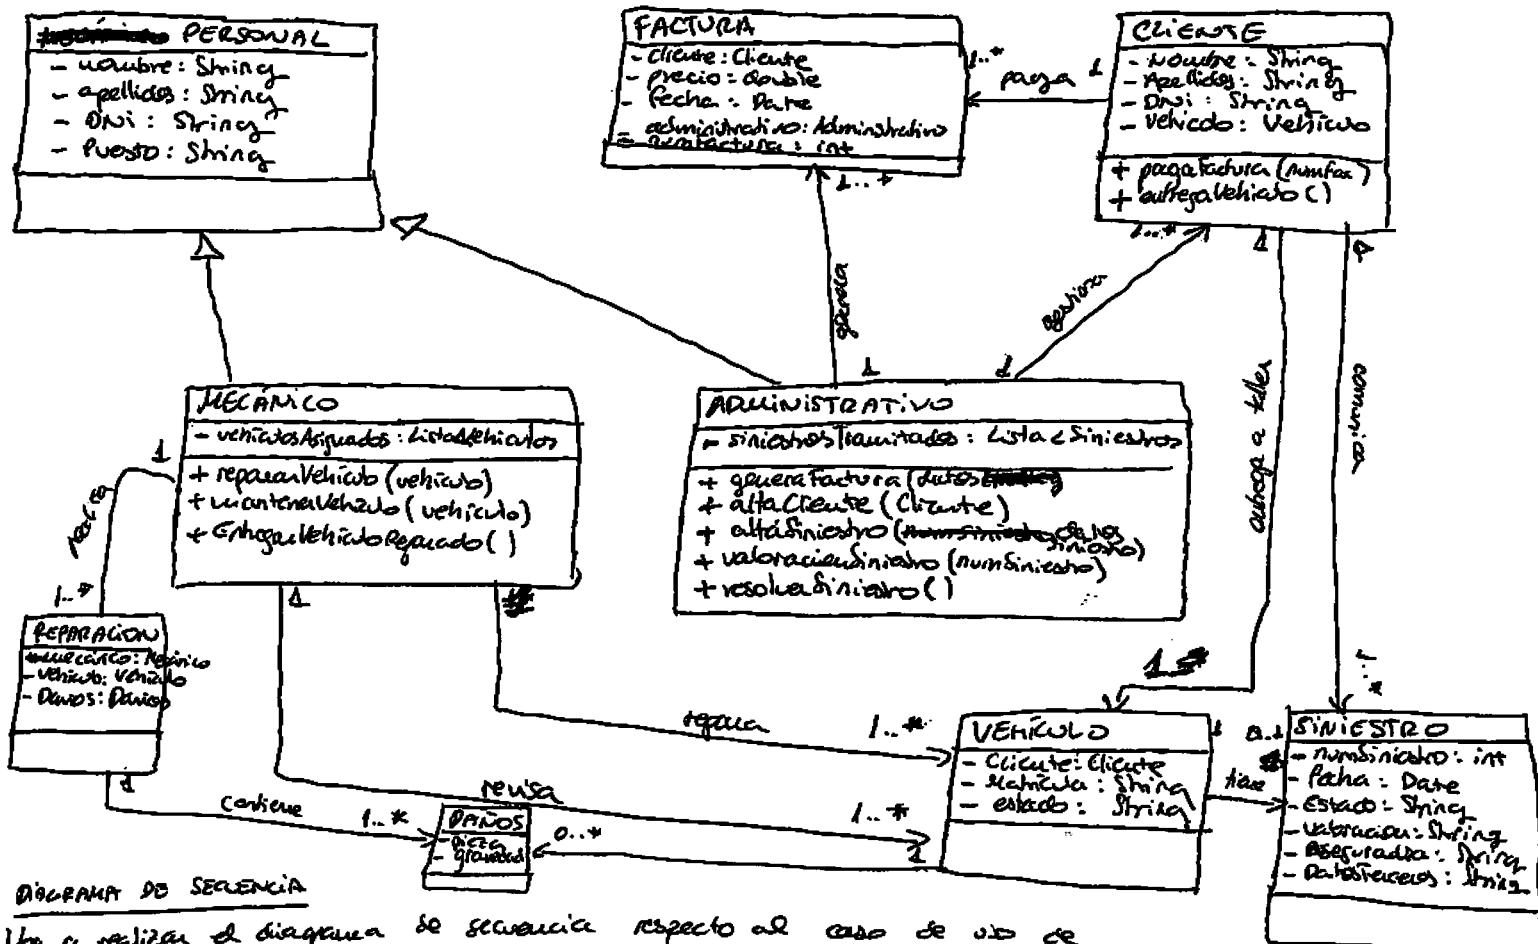 PERSONAL
- nombre: String
- apellidos: String
- DNi: String
- Puesto: String
FACTURA
- cliente: Cliente
- precio: double
- fecha: Date
- administrativo: Administrativo
- numfactura: int
1..*
paga
1
CLIENTE
- Nombre: String
- Apellidos: String
- DNi: String
- Vehiculo: Vehiculo
+ pagaFactura (numfac)
+ entregaVehiculo()
1..*
1..*
1
1
genera
gestiona
entrega a taller
comunica
1
1
MECÁNICO
- vehiculosAsignados: ListaVehiculos
+ repararVehículo (vehículo)
+ mantenerVehiculo (vehículo)
+ EntregarVehiculoReparado()
ADMINISTRATIVO
- siniestrosTramitados: Lista<Siniestros
+ generaFactura (datos
+ altaCliente (Cliente)
+ altaSiniestro (datos siniestro)
+ valoracionSiniestro (numSiniestro)
+ resolverSiniestro()
1
realiza
1..*
1
REPARACION
- mecánico: Mecánico
- Vehiculo: Vehículo
- Daños: Daños
1
contiene
1..*
repara
1..*
revisa
1..*
DAÑOS
- pieza
- gravedad
0..*
1
1
1..*
VEHÍCULO
- Cliente: Cliente
- Matrícula: String
- estado: String
1
0..1
tiene
SINIESTRO
- numSiniestro: int
- Fecha: Date
- Estado: String
- valoracion: String
- Aseguradora: String
- DatosTerceros: String
DIAGRAMA DE SECUENCIA
a realizar el diagrama de secuencia respecto al caso de uso de